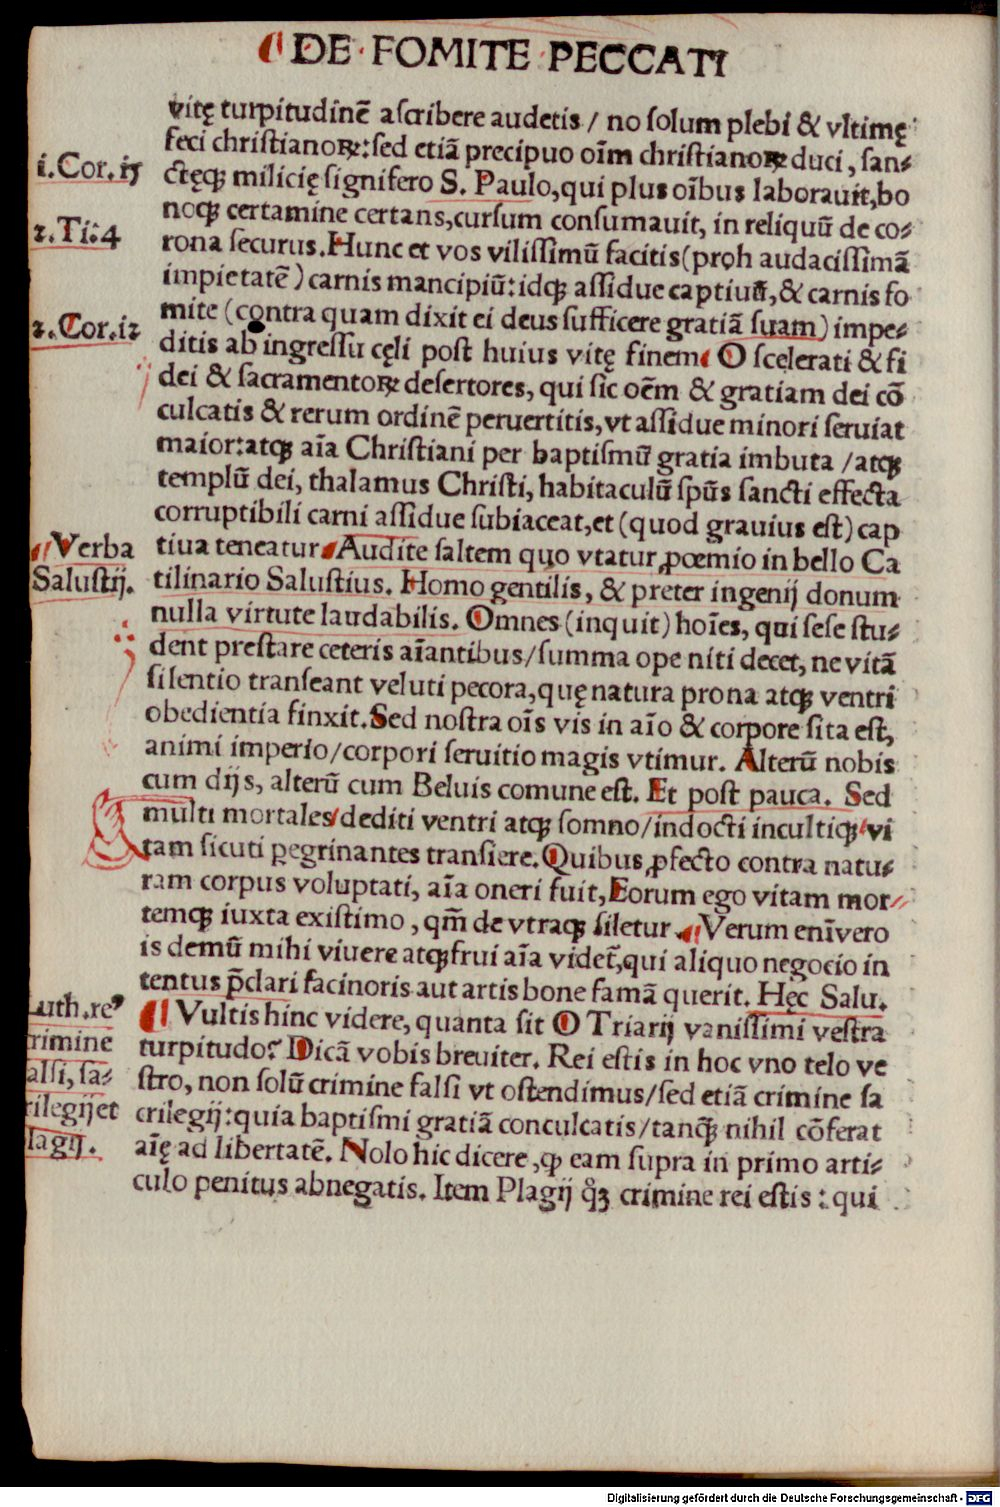 DE FOMITE PECCATI
vitę turpitudinē ascribere audetis / no solum plebi & vltimę
feci christianoꝝ: sed etiā precipuo oīm christianoꝝ duci, san⸗
i. Cor. 15
ctęqꝫ milicię signifero S. Paulo, qui plus oībus laborauit, bo
noqꝫ certamine certans, cursum consumauit, in reliquū de co⸗
2. Ti: 4
rona securus. Hunc et vos vilissimū facitis (proh audacissimā
impietatē) carnis mancipiū: idqꝫ assidue captiuū, & carnis fo
mite (contra quam dixit ei deus sufficere gratiā suam) impe⸗
2. Cor. 12
ditis ab ingressu cęli post huius vitę finem O scelerati & fi
dei & sacramentoꝝ desertores, qui sic oēm & gratiam dei cō
culcatis & rerum ordinē peruertitis, vt assidue minori seruiat
maior: atqꝫ aīa Christiani per baptismū gratia imbuta / atqꝫ
templū dei, thalamus Christi, habitaculū spūs sancti effecta
corruptibili carni assidue subiaceat, et (quod grauius est) cap
tiua teneatur Audite saltem quo vtatur ꝓœmio in bello Ca
Verba
Salustij.
tilinario Salustius. Homo gentilis, & preter ingenij donum
nulla virtute laudabilis. Omnes (inquit) hoīes, qui sese stu⸗
dent prestare ceteris aīantibus / summa ope niti decet, ne vitā
silentio transeant veluti pecora, quę natura prona atqꝫ ventri
obedientia finxit. Sed nostra oīs vis in aīo & corpore sita est,
animi imperio / corpori seruitio magis vtimur. Alterū nobis
cum dijs, alterū cum Beluis comune est. Et post pauca. Sed
multi mortales / dediti ventri atqꝫ somno / indocti incultiqꝫ / vi
tam sicuti pegrinantes transiere. Quibus ꝓfecto contra natu⸗
ram corpus voluptati, aīa oneri fuit, Eorum ego vitam mor⸗
temqꝫ iuxta existimo, qm̄ de vtraqꝫ siletur. Verum enīvero
is demū mihi viuere atqꝫ frui aīa videt̄, qui aliquo negocio in
tentus p̄clari facinoris aut artis bone famā querit. Hęc Salu.
Vultis hinc videre, quanta sit O Triarij vanissimi vestra
Luth. re⁹
crimine
falsi, sa⸗
crilegij et
plagij.
turpitudo? Dicā vobis breuiter. Rei estis in hoc vno telo ve
stro, non solū crimine falsi vt ostendimus / sed etiā crimine sa
crilegij: quia baptismi gratiā conculcatis / tanqꝫ̄ nihil cōferat
aīę ad libertatē. Nolo hic dicere, ꝙ eam supra in primo arti⸗
culo penitus abnegatis. Item Plagij qͦꝫ crimine rei estis: qui
Digitalisierung gefördert durch die Deutsche Forschungsgemeinschaft - DFG